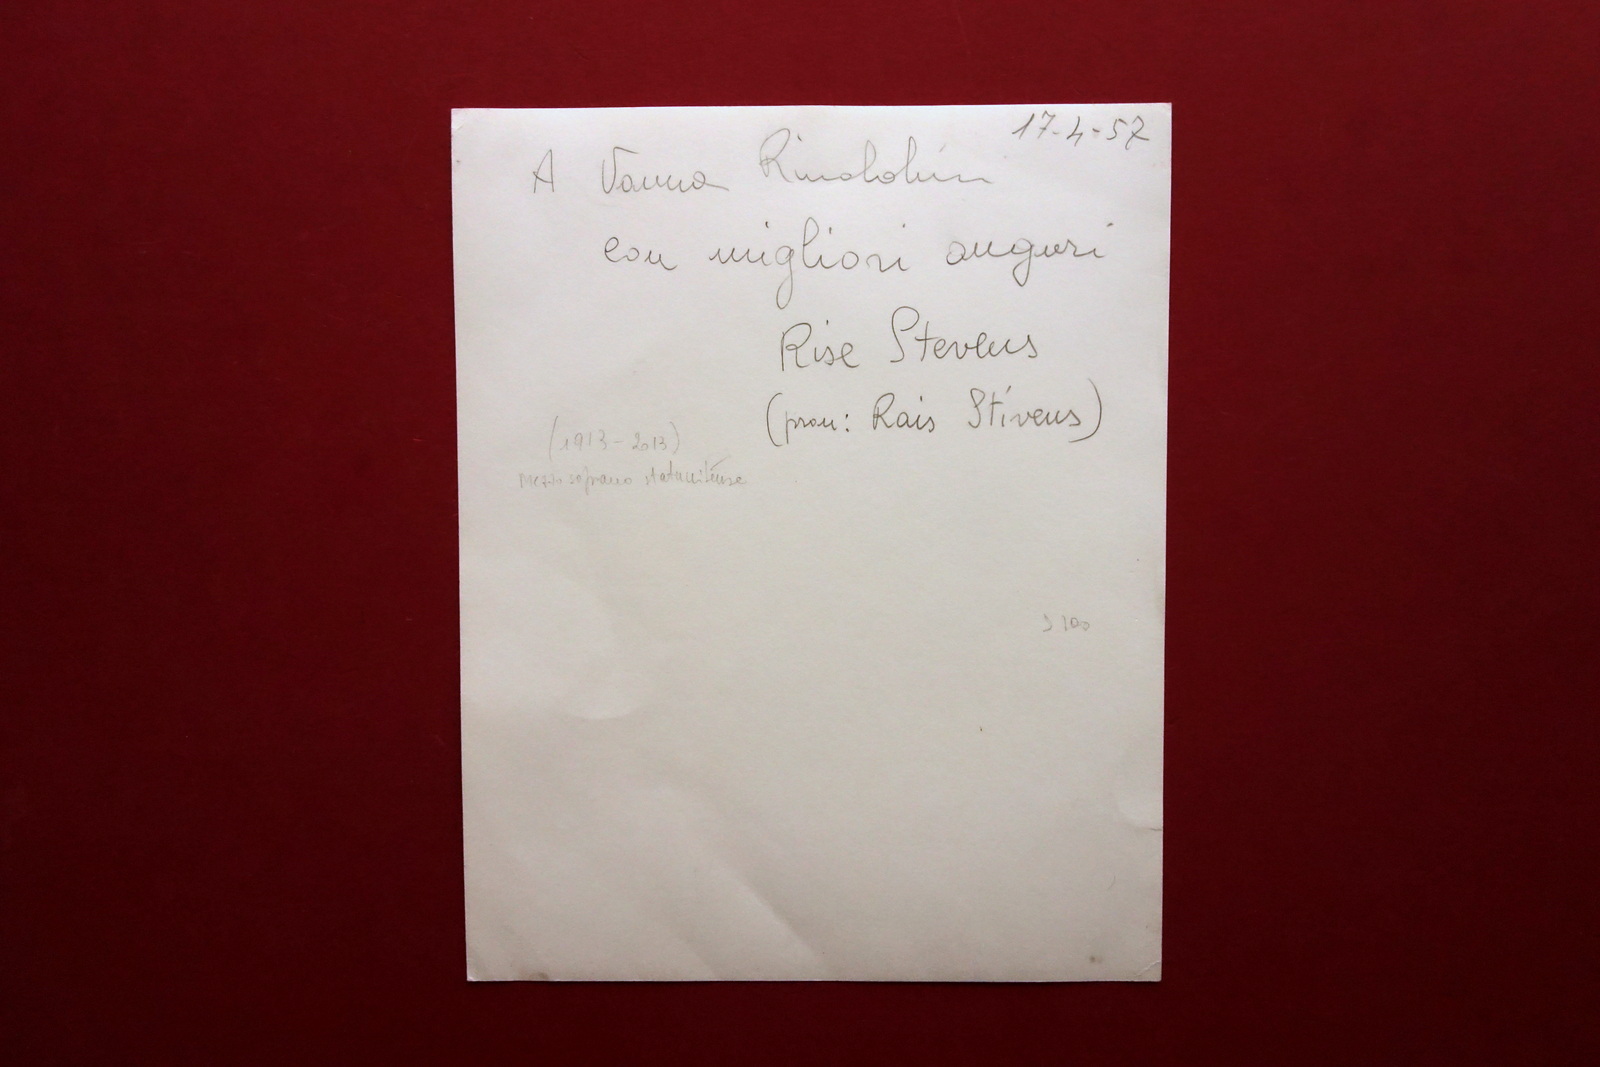 17-4-57
A Vanna Rinaldini
con migliori auguri
Rise Stevens
(pron: Rais Stívens)
(1913-2013)
mezzosoprano statunitense